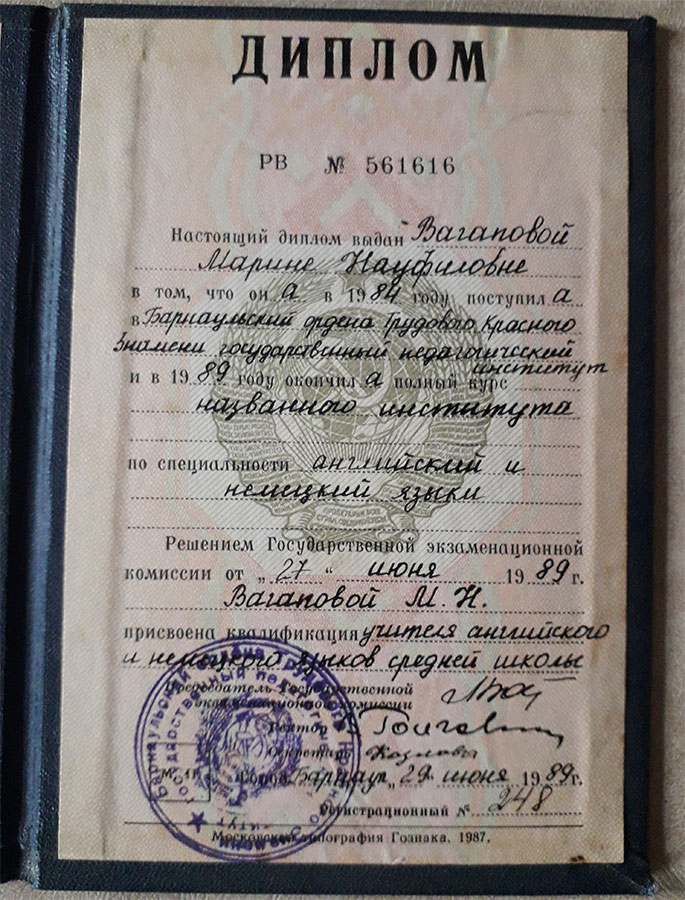 ДИПЛОМ
РВ № 561616
Настоящий диплом выдан Вагаповой
Марине Науфиловне
в том, что он а в 1984 году поступил а
в Барнаульский ордена Трудового Красного
Знамени государственный педагогический
институт
и в 1989 году окончил а полный курс
названного института
по специальности английский и
немецкий языки
Решением Государственной экзаменационной
комиссии от „27“ июня 1989 г.
Вагаповой М. Н.
присвоена квалификация учителя английского
и немецкого языков средней школы
Председатель Государственной
экзаменационной комиссии
Ректор
Секретарь
Город Барнаул „29“ июня 1989 г.
Регистрационный № 248
Московская типография Гознака. 1987.